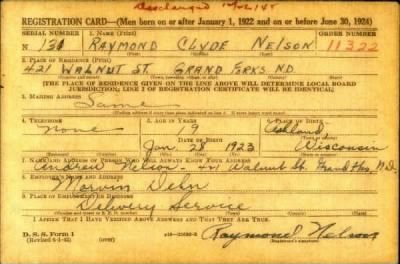 Discharged 12/2/45
REGISTRATION CARD—(Men born on or after January 1, 1922 and on or before June 30, 1924)
SERIAL NUMBER 1. NAME (Print) ORDER NUMBER
N 131 RAYMOND CLYDE NELSON 11322
2. PLACE OF RESIDENCE (Print)
421 WALNUT ST. GRAND FORKS N.D.
[THE PLACE OF RESIDENCE GIVEN ON THE LINE ABOVE WILL DETERMINE LOCAL BOARD
JURISDICTION; LINE 2 OF REGISTRATION CERTIFICATE WILL BE IDENTICAL]
3. MAILING ADDRESS
Same
4. TELEPHONE 5. AGE IN YEARS 6. PLACE OF BIRTH
none 19 Ashland
DATE OF BIRTH
Jan. 28 1923 Wisconsin
7. NAME AND ADDRESS OF PERSON WHO WILL ALWAYS KNOW YOUR ADDRESS
Andrew Nelson - 421 Walnut St. Grand Fks. N.D.
8. EMPLOYER'S NAME AND ADDRESS
Marvin Dehn
9. PLACE OF EMPLOYMENT OR BUSINESS
Delivery Service
I AFFIRM THAT I HAVE VERIFIED ABOVE ANSWERS AND THAT THEY ARE TRUE.
D. S. S. Form 1
(Revised 6-9-42)
Raymond Nelson
(Registrant's signature)